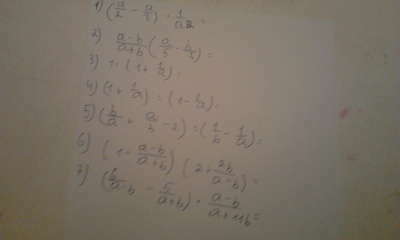 1) (a/2 - a/3) : 1/a2 =
2) a-b/a+b (a/3 - b/3) =
3) 1 : (1 + 1/a) =
4) (1 + 1/a) : (1 - 1/a) =
5) (b/a + a/b - 2) : (1/b - 1/a) =
6) (1 + a-b/a+b) (2 + 2b/a-b) =
7) (6/a-b - 5/a+b) · a-b/a+11b =